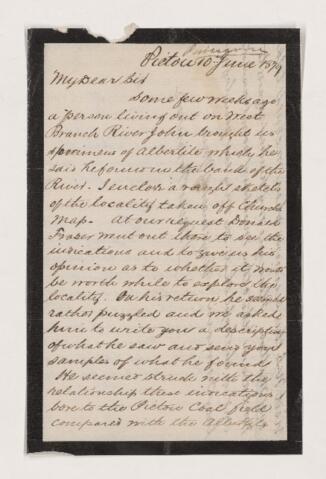 Pictou 10 June 1879
My Dear Sir
Some few weeks ago
a person living out on West
Branch River John brought us
specimens of Albertite which he
said he found in the bank of the
River. I enclose a rough sketch
of the locality taken off Church's
Map. At our request Donald
Fraser went out there to see the
indications and to give us his
opinion as to whether it would
be worth while to explore the
locality. On his return he seemed
rather puzzled and we asked
him to write you a description
of what he saw and send you
samples of what he found
He seemed struck with the
relationship these indications
bore to the Pictou Coal field
compared with the Albertite